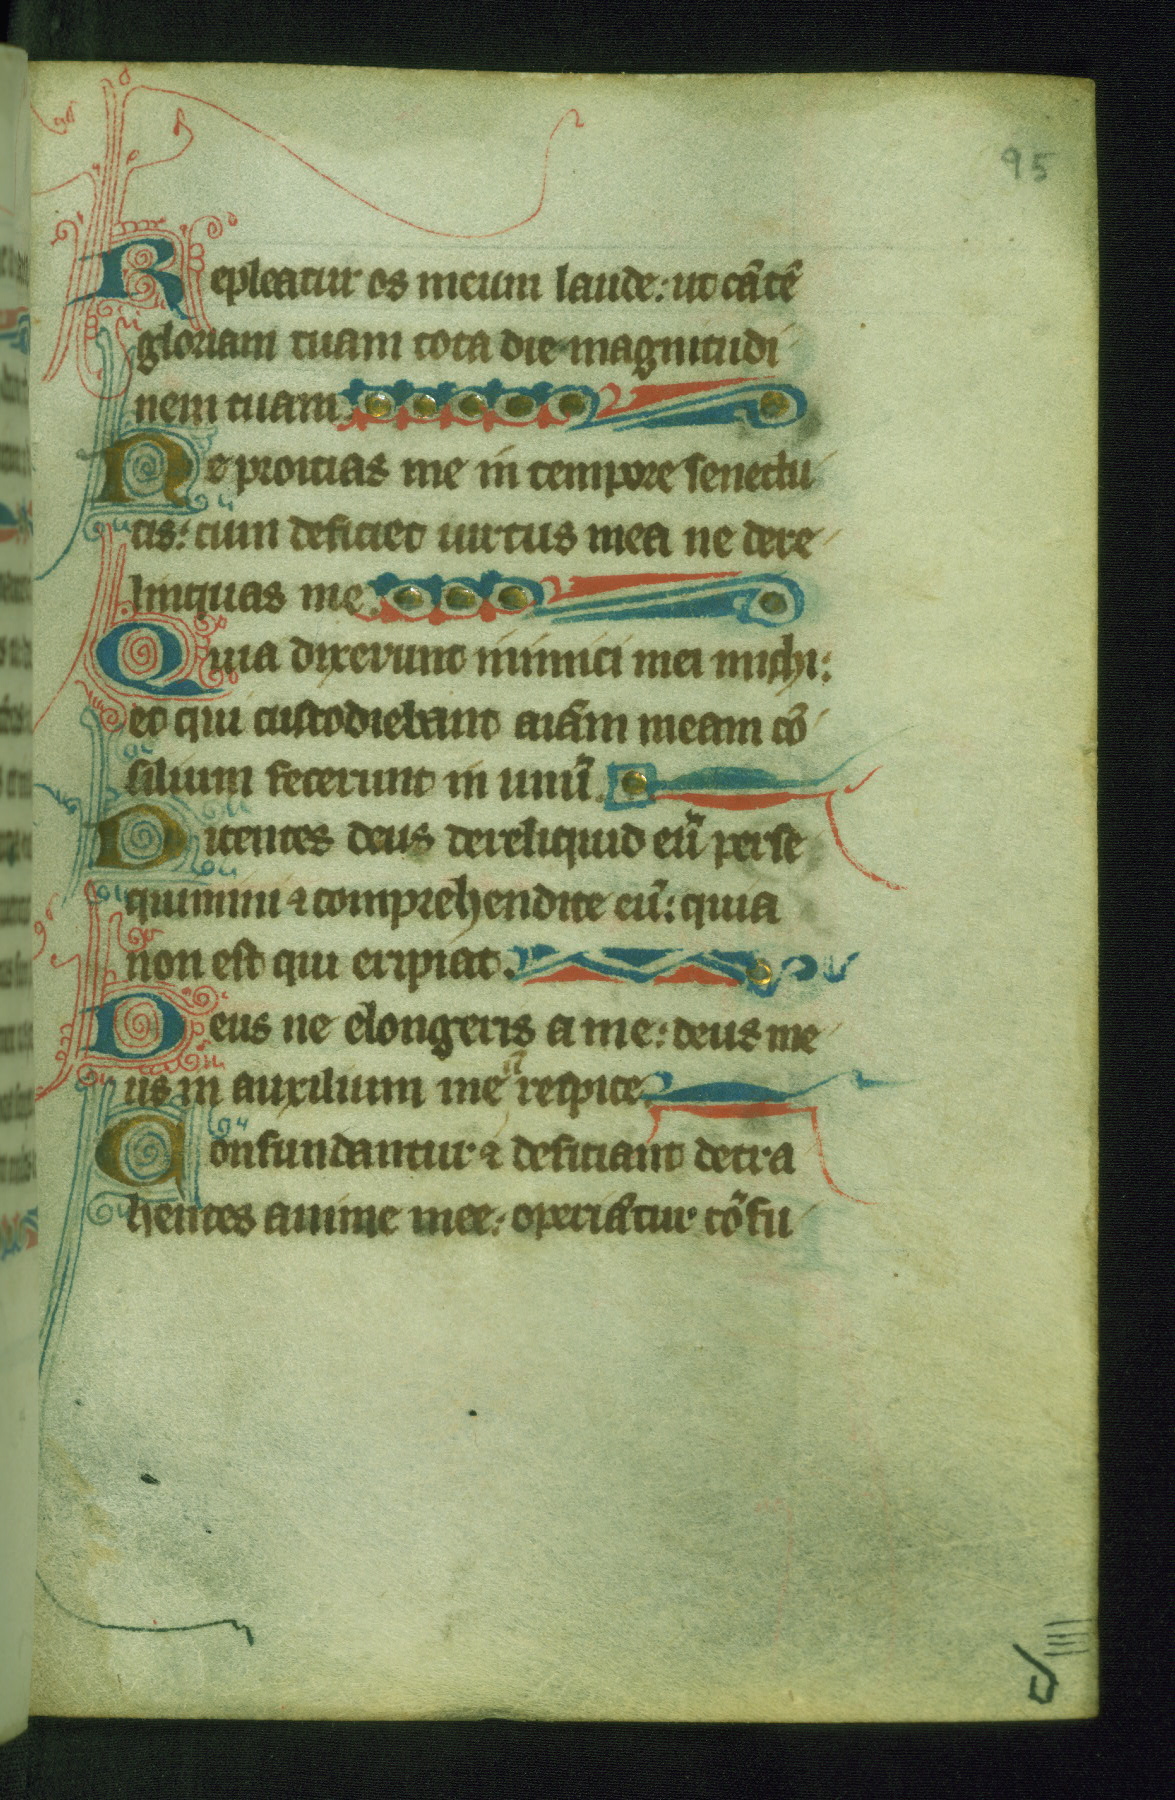 95
Repleatur os meum laude: ut cātē
gloriam tuam tota die magnitudi
nem tuam.
Ne proicias me in tempore senectu
tis: cum deficiet uirtus mea ne dere
linquas me.
Quia dixerunt inimici mei michi:
et qui custodiebant aīam meam cō
silium fecerunt in unū.
Dicentes deus dereliquid eū perse
quimini ⁊ comprehendite eū: quia
non est qui eripiat.
Deus ne elongeris a me: deus me
us in auxilium meū respice.
Confundantur ⁊ deficiant detra
hentes anime mee: operiātur cōfu
d